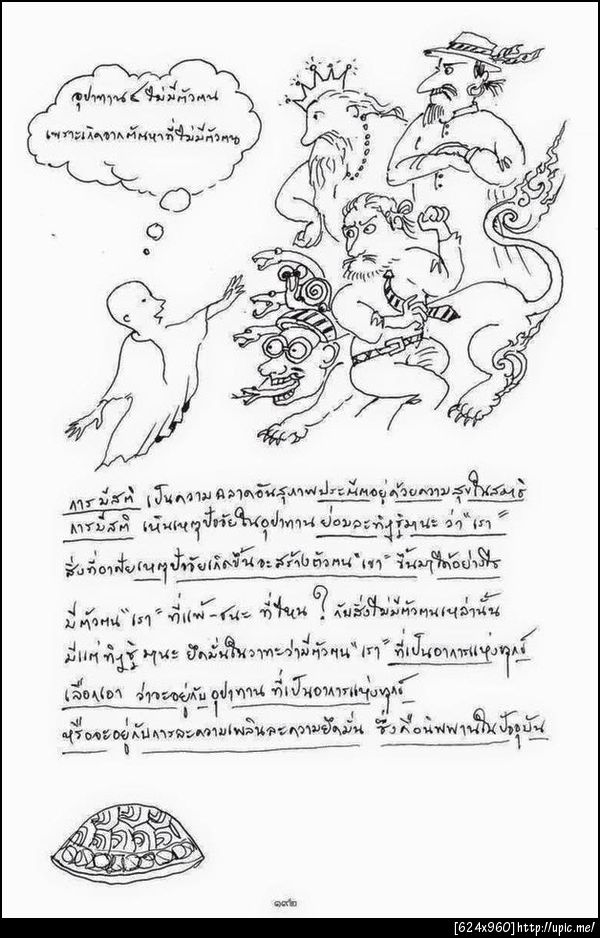 อุปาทาน ๔ ไม่มีตัวตน
เพราะเกิดจากตัณหาที่ไม่มีตัวตน
การมีสติ เป็นความฉลาดอันสุภาพประณีตอยู่ด้วยความสุขในสมาธิ
การมีสติ เห็นเหตุปัจจัยในอุปาทาน ย่อมละทิฏฐิมานะ ว่า "เรา"
สิ่งที่อาศัยเหตุปัจจัยเกิดขึ้นจะสร้างตัวตน "เขา" ขึ้นมาได้อย่างไร
มีตัวตน "เรา" ที่แพ้-ชนะ ที่ไหน? กับสิ่งไม่มีตัวตนเหล่านั้น
มีแต่ทิฏฐิมานะ ยึดมั่นในวาทะว่ามีตัวตน "เรา" ที่เป็นอาการแห่งทุกข์
เลือกเอา ว่าจะอยู่กับ อุปาทาน ที่เป็นอาการแห่งทุกข์
หรือจะอยู่กับการละความเพลินละความยึดมั่น ซึ่งคือนิพพานในปัจจุบัน
๑๙๒
[624x960]http://upic.me/